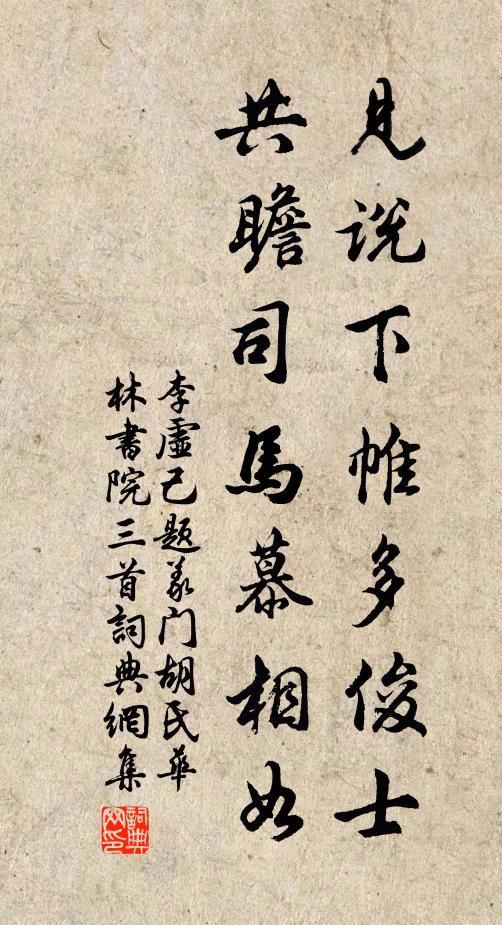 見說下帷多俊士
共瞻司馬慕相如
李虛己題義门胡氏華
林書院三首詞典網集
詞典网印